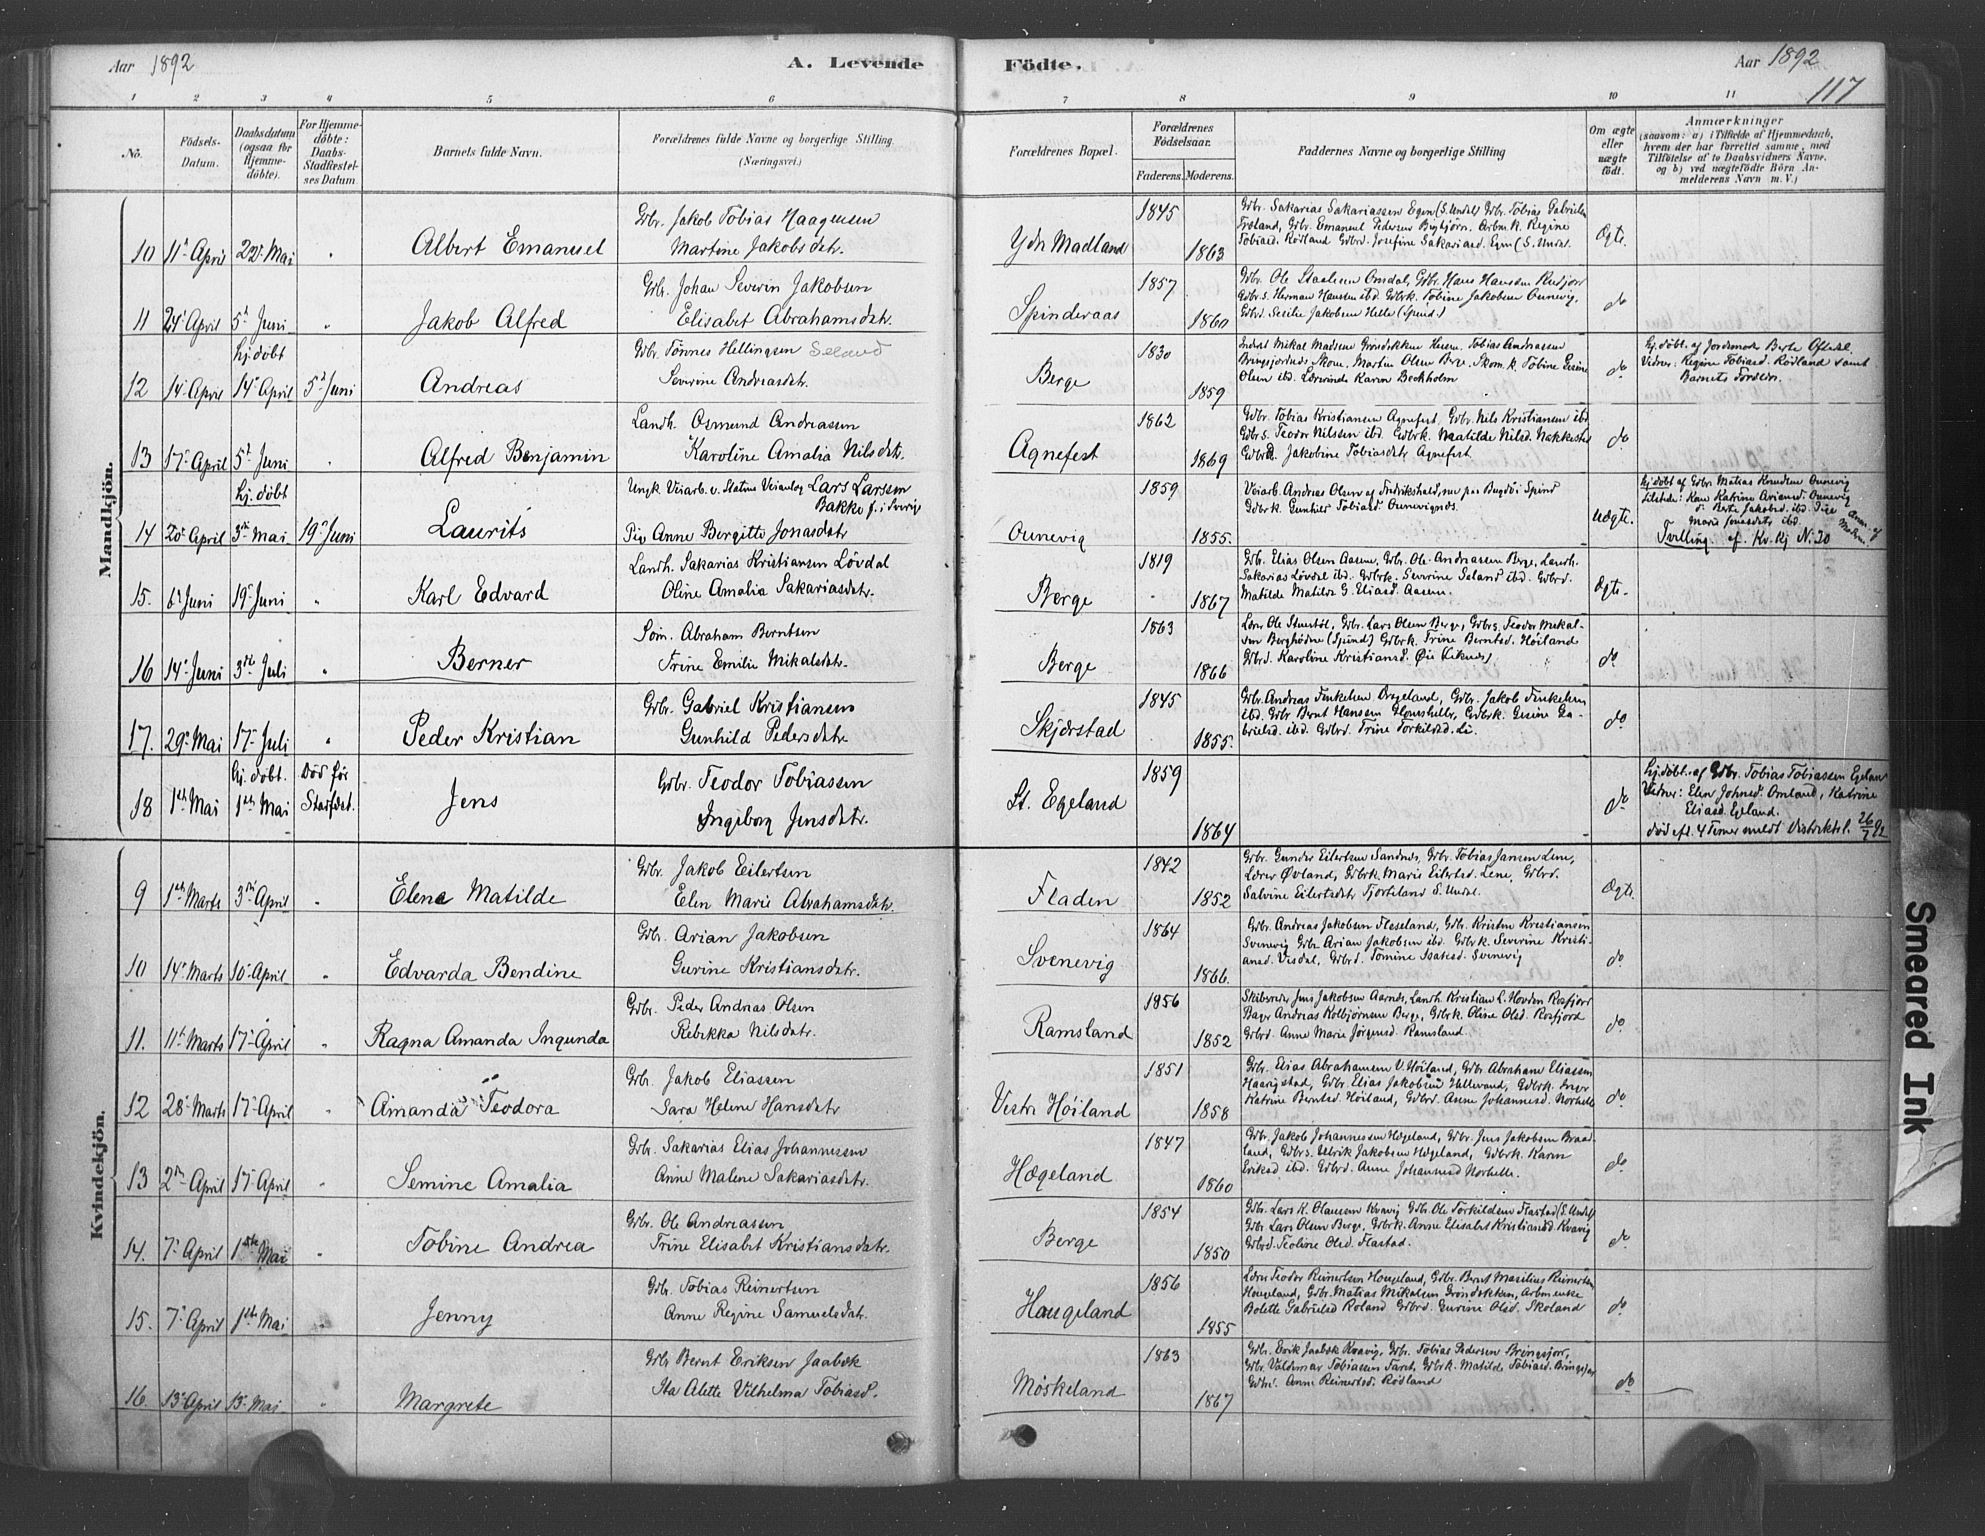 Aar 1892
A. Levende Födte.
Aar 1892
117
1 2 3 4 5 6 7 8 9 10 11
No.
Födsels-Datum.
Daabsdatum (ogsaa for Hjemme-döbte).
For Hjemme-döbte: Daabs-Stadfæstel-ses Datum
Barnets fulde Navn.
Forældrenes fulde Navne og borgerlige Stilling (Næringsvei.)
Forældrenes Bopæl.
Forældrenes Födselsaar.
Faderens. Moderens.
Faddernes Navne og borgerlige Stilling
Om ægte eller uægte födt.
Anmærkninger
(saasom: a) i Tilfælde af Hjemmedaab, hvem der har forrettet samme, med Tilföielse af to Daabsvidners Navne. og b) ved uægtefödte Börn An-melderens Navn m. V.)
Mandkjön.
10 11te April 22de Mai " Albert Emanuel
Gbr. Jakob Tobias Haagensen
Martine Jakobsdatr.
Ydr Madland 1845 1863
Gbr. Sakarias Sakariassen Egen (S. Undal) Gbr. Tobias Gabrielsen
Tobiasd. Rödland Gbrd. Josefine Sakariasd. Egen (S. Undal.
Ægte.
11 24de April 5te Juni " Jakob Alfred
Gbr. Johan Severin Jakobsen
Elisabet Abrahamsdatr.
Spinderaas 1857 1860
Gbr. Ole Staalesen Omdal, Gbr. Hans Hansen
Gbrs. Herman Hansen ibd. Gbrk. Tobine Jakobsen Ounevig,
Gbrd. Sesilie Jakobsen Helle (Spind.)
do
12 14de April Hj. döbt 14de April 5te Juni Andreas
Gbr. Tönnes Hellingsen Seland
Severine Andreasdatr.
Berge 1830 1859
Inderst Mikal Madsen Gröndokken Husm. Tobias Andreassen
Bringsjordnes, Skom. Martin Olsen Berge, Skom. k. Tobine Gesine
Olsen ibd. Lærerinde Karen Beckholm
do
Hj. döbt. af Jordemoder Berte Oftedal
Vidner: Regine Tobiasd. Rödland samt
Barnets Forældre.
13 17de April 5te Juni " Alfred Benjamin
Landh. Osmund Andreassen
Karoline Amalia Nilsdatr.
Agnefest 1862 1869
Gbr. Tobias Kristiansen Agnefest, Gbr. Nils Kristiansen ibd
Gbrs. Teodor Nilssen ibd. Gbrk. Matilde Nilsd. Nakkestad
Gbrd. Jakobine Tobiasdatr Agnefest.
do
14 20de April Hj. döbt 3die Mai 19de Juni Laurits
Ungk Veiarb. v. Statens Veianlæg Lars Larssen
Bakke f. i Sverige
Pig Anne Bergitte Jonasdatr
Ounevig 1859 1855.
Veiarb. Andreas Olsen af Fredrikshald, nu paa Bugdöi Spind
Gbrk. Gunhild Tobiasd. Ounevignes.
Uægte.
Hj. döbt af Gbr. Matias Knudsen Ounevig
Berte Jakobsd. ibd. Pige
Marie Jonasdatr ibd.
Tvilling af. Kv. Kj N: 20
15. 6te Juni 19de Juni " Karl Edvard
Landh. Sakarias Kristiansen Lövdal
Oline Amalia Sakariasdatr.
Berge 1819 1867
Gbr. Elias Olsen Aasen, Gbr. Ole Andreasen Berge, Landh.
Sakarias Lövdal ibd. Gbrk. Severine Seland ibd. Gbrd.
Matilde Matilde G. Eliasd. Aasen.
Ægte.
16 14de Juni 3die Juli " Berner
Söm. Abraham Berntsen
Trine Emilie Mikalsdatr.
Berge 1863 1866
Gbr. Lars Olsen Berge, Gbrs. Teodor Mikal-
sen Berghödne (Spind) Gbrk. Trine Berntsd. Höiland
Gbrd. Karoline Kristiansd.
do
17. 29de Mai 17de Juli " Peder Kristian
Gbr. Gabriel Kristiansen
Gunhild Pedersdatr
Skjørstad 1845 1855.
Gbr. Andreas Tinkelsen Drageland, Gbr. Jakob Tinkelsen
ibd. Gbr Bernt Hansen Homshelle, Gbrk. Gesine Ga-
brielsd. ibd. Gbrd. Trine Torkildsd. Li.
do
18 1ste Mai Hj. döbt. 1ste Mai Död för Stadfæst. Jens
Gbr. Teodor Tobiassen
Ingeborg Jensdatr.
St. Egeland 1859 1864
do
Hj. döbt. af Gbr. Tobias Tobiassen Egeland
Vidner: Elen Johnsd. Omland, Katrine
Eliasd. Egeland.
död eft. 4 Timer meldt Distriktsl. 26/7 92
Kvindekjön.
9 1ste Marts 3die April " Elene Matilde
Gbr. Jakob Eilertsen
Elen Marie Abrahamsdatr.
Fladen 1842 1852
Gbr. Gunder Eilertsen Sandnes, Gbr. Tobias Jansen Lene,
Lærer Øvland, Gbrk. Marie Eilertsd. Lene, Gbrd.
Salvine Eilertsdatr Fjorteland S. Undal.
Ægte.
10 14de Marts 10de April " Edvarda Bendine
Gbr. Arian Jakobsen
Gurine Kristiansdatr.
Svenevig 1864 1866.
Gbr. Andreas Jakobsen Fleseland, Gbr. Kristen Kristiansen
Svenevig Gbr Arian Jakobsen ibd. Gbrk. Severine Kristi-
ansd. Visdal, Gbrd. Tomine Isaksd. Svenevig
do
11. 11te Marts 17de April " Ragna Amanda Ingunda
Gbr. Peder Andreas Olsen
Rebekka Nilsdatr.
Ramsland 1856 1852
Skibsreder Jens Jakobsen Aarnes, Landh. Kristian L. Hovden Rosfjord
Bager Andreas Kolbjörnsen Berge, Gbrk. Oline Olsd. Rosfjord
Gbrd. Anne Marie Jörgensd. Ramsland.
do
12 28de Marts 17de April " Amanda Teodora
Gbr. Jakob Eliassen
Sara Helene Hansdatr
Vestr Höiland 1851 1858
Gbr. Elias Abrahamsen V. Höiland, Gbr Abraham Eliassen
Haarigstad, Gbr. Elias Jakobsen Hellevand, Gbrk. Inger
Katrine Berntsd. Höiland, Gbrd. Anne Johannesd. Norhelle
do
13 2den April 17de April " Semine Amalia
Gbr. Sakarias Elias Johannessen
Anne Malene Sakariasdatr.
Hægeland 1847 1860
Gbr. Jakob Johannessen Hægeland, Gbr. Jens Jakobsen Braad-
land, Gbrs. Ulrik Jakobsen Hægeland, Gbrk. Karen
Eriksd ibd. Gbrd. Anne Johannesd Norhelle.
do
14. 7de April 1ste Mai " Tobine Andrea
Gbr. Ole Andreassen
Trine Elisabet Kristiansdatr.
Berge 1854 1850
Gbr. Lars K. Olausen Kvavig Gbr. Ole Torkildsen Flastad (S. Undal)
Gbr Lars Olsen Berge, Gbrk. Anne Elisabet Kristiansd Kvavig
Gbrd. Teoline Olsd. Flastad.
do
15. 7de April 1ste Mai " Jenny
Gbr. Tobias Reinertsen
Anne Regine Samuelsdatr.
Haugeland 1856 1855
Lærer Teodor Reinertsen Haugeland, Gbr. Bernt Masilius Reinertsen
Haugeland, Gbr. Matias Mikalsen Gröndokken, Arbmenske
Bolette Gabrielsd Roland Gbrd. Gurine Olsd. Skoland
do
16. 13de April 13de Mai " Margrete
Gbr Bernt Eriksen Jaabæk
Ita Alette Vilhelma Tobiasd.
Möskeland 1863 1867
Gbr. Erik Jaabæk Kvavig, Gbr. Tobias Pedersen Bringsjor,
Gbr. Valdemar Tobiassen Faret, Gbrk. Matilde Tobiasd. Bringsjor
Gbrd. Anne Reinertsd. Rödland
do
Smeared Ink